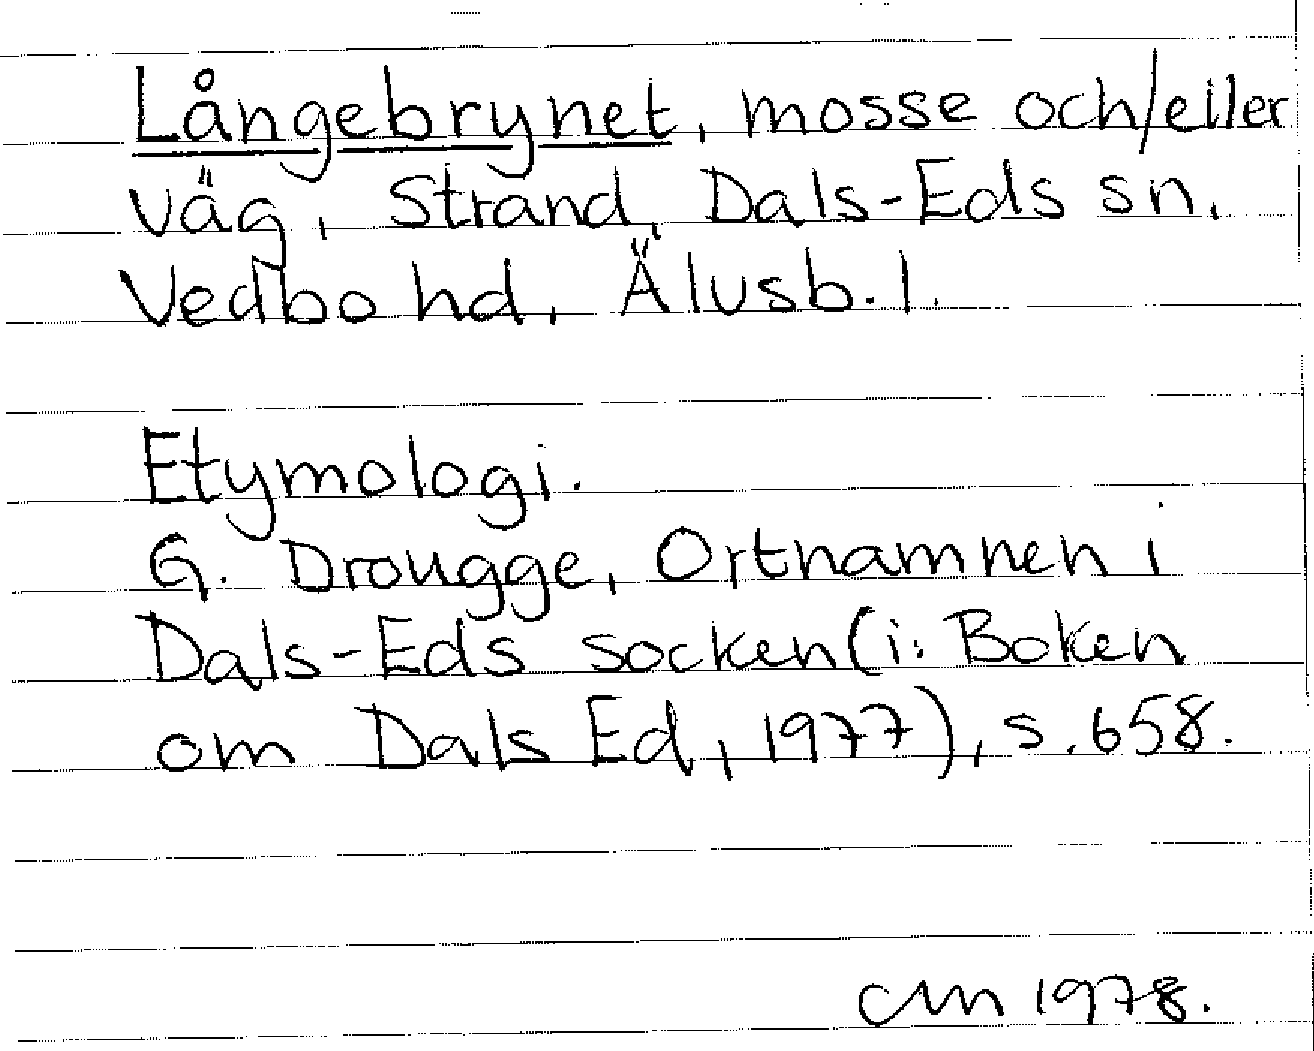 Långebrynet, mosse och/eller
väg, Strand, Dals-Eds sn,
Vedbo hd, Älvsb. l.
Etymologi.
G. Drougge, Ortnamnen i
Dals-Eds socken (i: Boken
om Dals Ed, 1977), s. 658.
CM 1978.